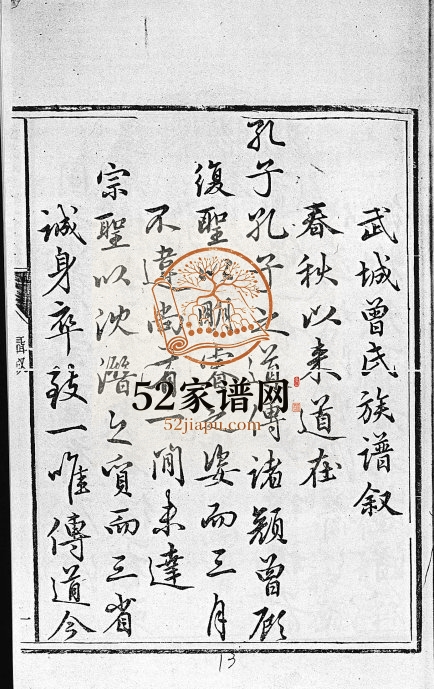 武城曾氏族譜叙
春秋以来道在
孔子孔子之道傳諸顏曾顧
復聖以明睿之姿而三月
不違尚有一間未達
宗聖以沈潛之質而三省
誠身卒致一唯傳道今
52家谱网
52jiapu.com
13